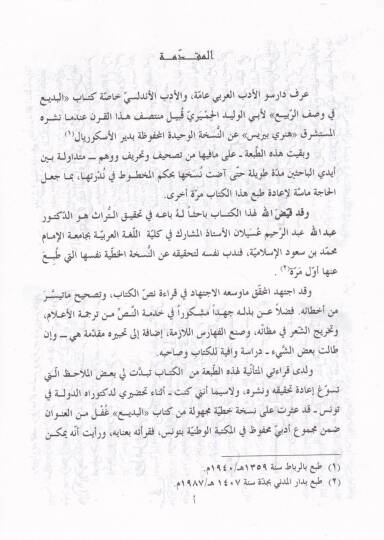 المقـدّمـة
عرف دارسو الأدب العربي عامّة، والأدب الأندلسيّ خاصّة كتاب «البديع
في وصف الرّبيع» لأبي الوليد الحِمْيَريّ قُبيل منتصف هذا القرن عندما نشره
المستشرق «هنري بيريس» عن النُّسخة الوحيدة المحفوظة بدير الأسكوريال(١)
وبقيت هذه الطَّبعة ـ على مافيها من تصحيف وتحريف ووهم ـ متداولة بين
أيدي الباحثين مدّة طويلة حتى آضت نُسخها بحكم المخطوط في نُدرتها، بما جعل
الحاجة ماسّة لإعادة طبع هذا الكتاب مرّة أخرى.
وقد قيّض الله لهذا الكتاب باحثاً لهُ باعه في تحقيق التُراث هو الدّكتور
عبد الله عبد الرّحيم عُسيلان الأستاذ المشارك في كليّة اللّغة العربية بجامعة الإمام
محمّد بن سعود الإسلاميّة، فندب نفسه لتحقيقه عن النُّسخة الخطّية نفسها التي طُبِعَ
عنها أوّل مرّة(٢).
وقد اجتهد المحقّق ماوسعه الاجتهاد في قراءة نصّ الكتاب، وتصحيح ماتيسَّرَ
من أخطائه. فضلاً عن بذله جهداً مشكوراً في خدمة النّصّ من ترجمة الأعلام،
وتخريج الشعر في مظانّه، وصنع الفهارس اللازمة، إضافة إلى تحبيره مقدّمة هي ـ وإن
طالت بعض الشَّيء ـ دراسة وافية للكتاب وصاحبه.
ولدى قراءتي المتأنّية لهذه الطبعة من الكتاب تبدّت لي بعض الملاحظ الّتي
تسوّغ إعادة تحقيقه ونشره، ولاسيما أنني كنت ـ أثناء تحضيري لدكتوراه الدولة في
تونس ـ قد عثرت على نسخة خطيّة مجهولة من كتاب «البديع» غُفْل من العنوان
ضمن مجموع أدبيّ محفوظ في المكتبة الوطنيّة بتونس، فقرأته بعناية، ورأيت أنّه يمكن
(١) طبع بالرباط سنة ١٣٥٩هـ/١٩٤٠م.
(٢) طبع بدار المدني بجدّة سنة ١٤٠٧ هـ/١٩٨٧م.